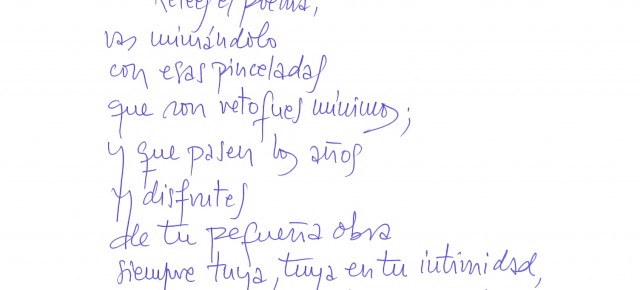 Relees el poema,
vas mimándolo
con esas pinceladas
que son retoques mínimos;
y que pasen los años
y disfrutes
de tu pequeña obra
siempre tuya, tuya en tu intimidad,